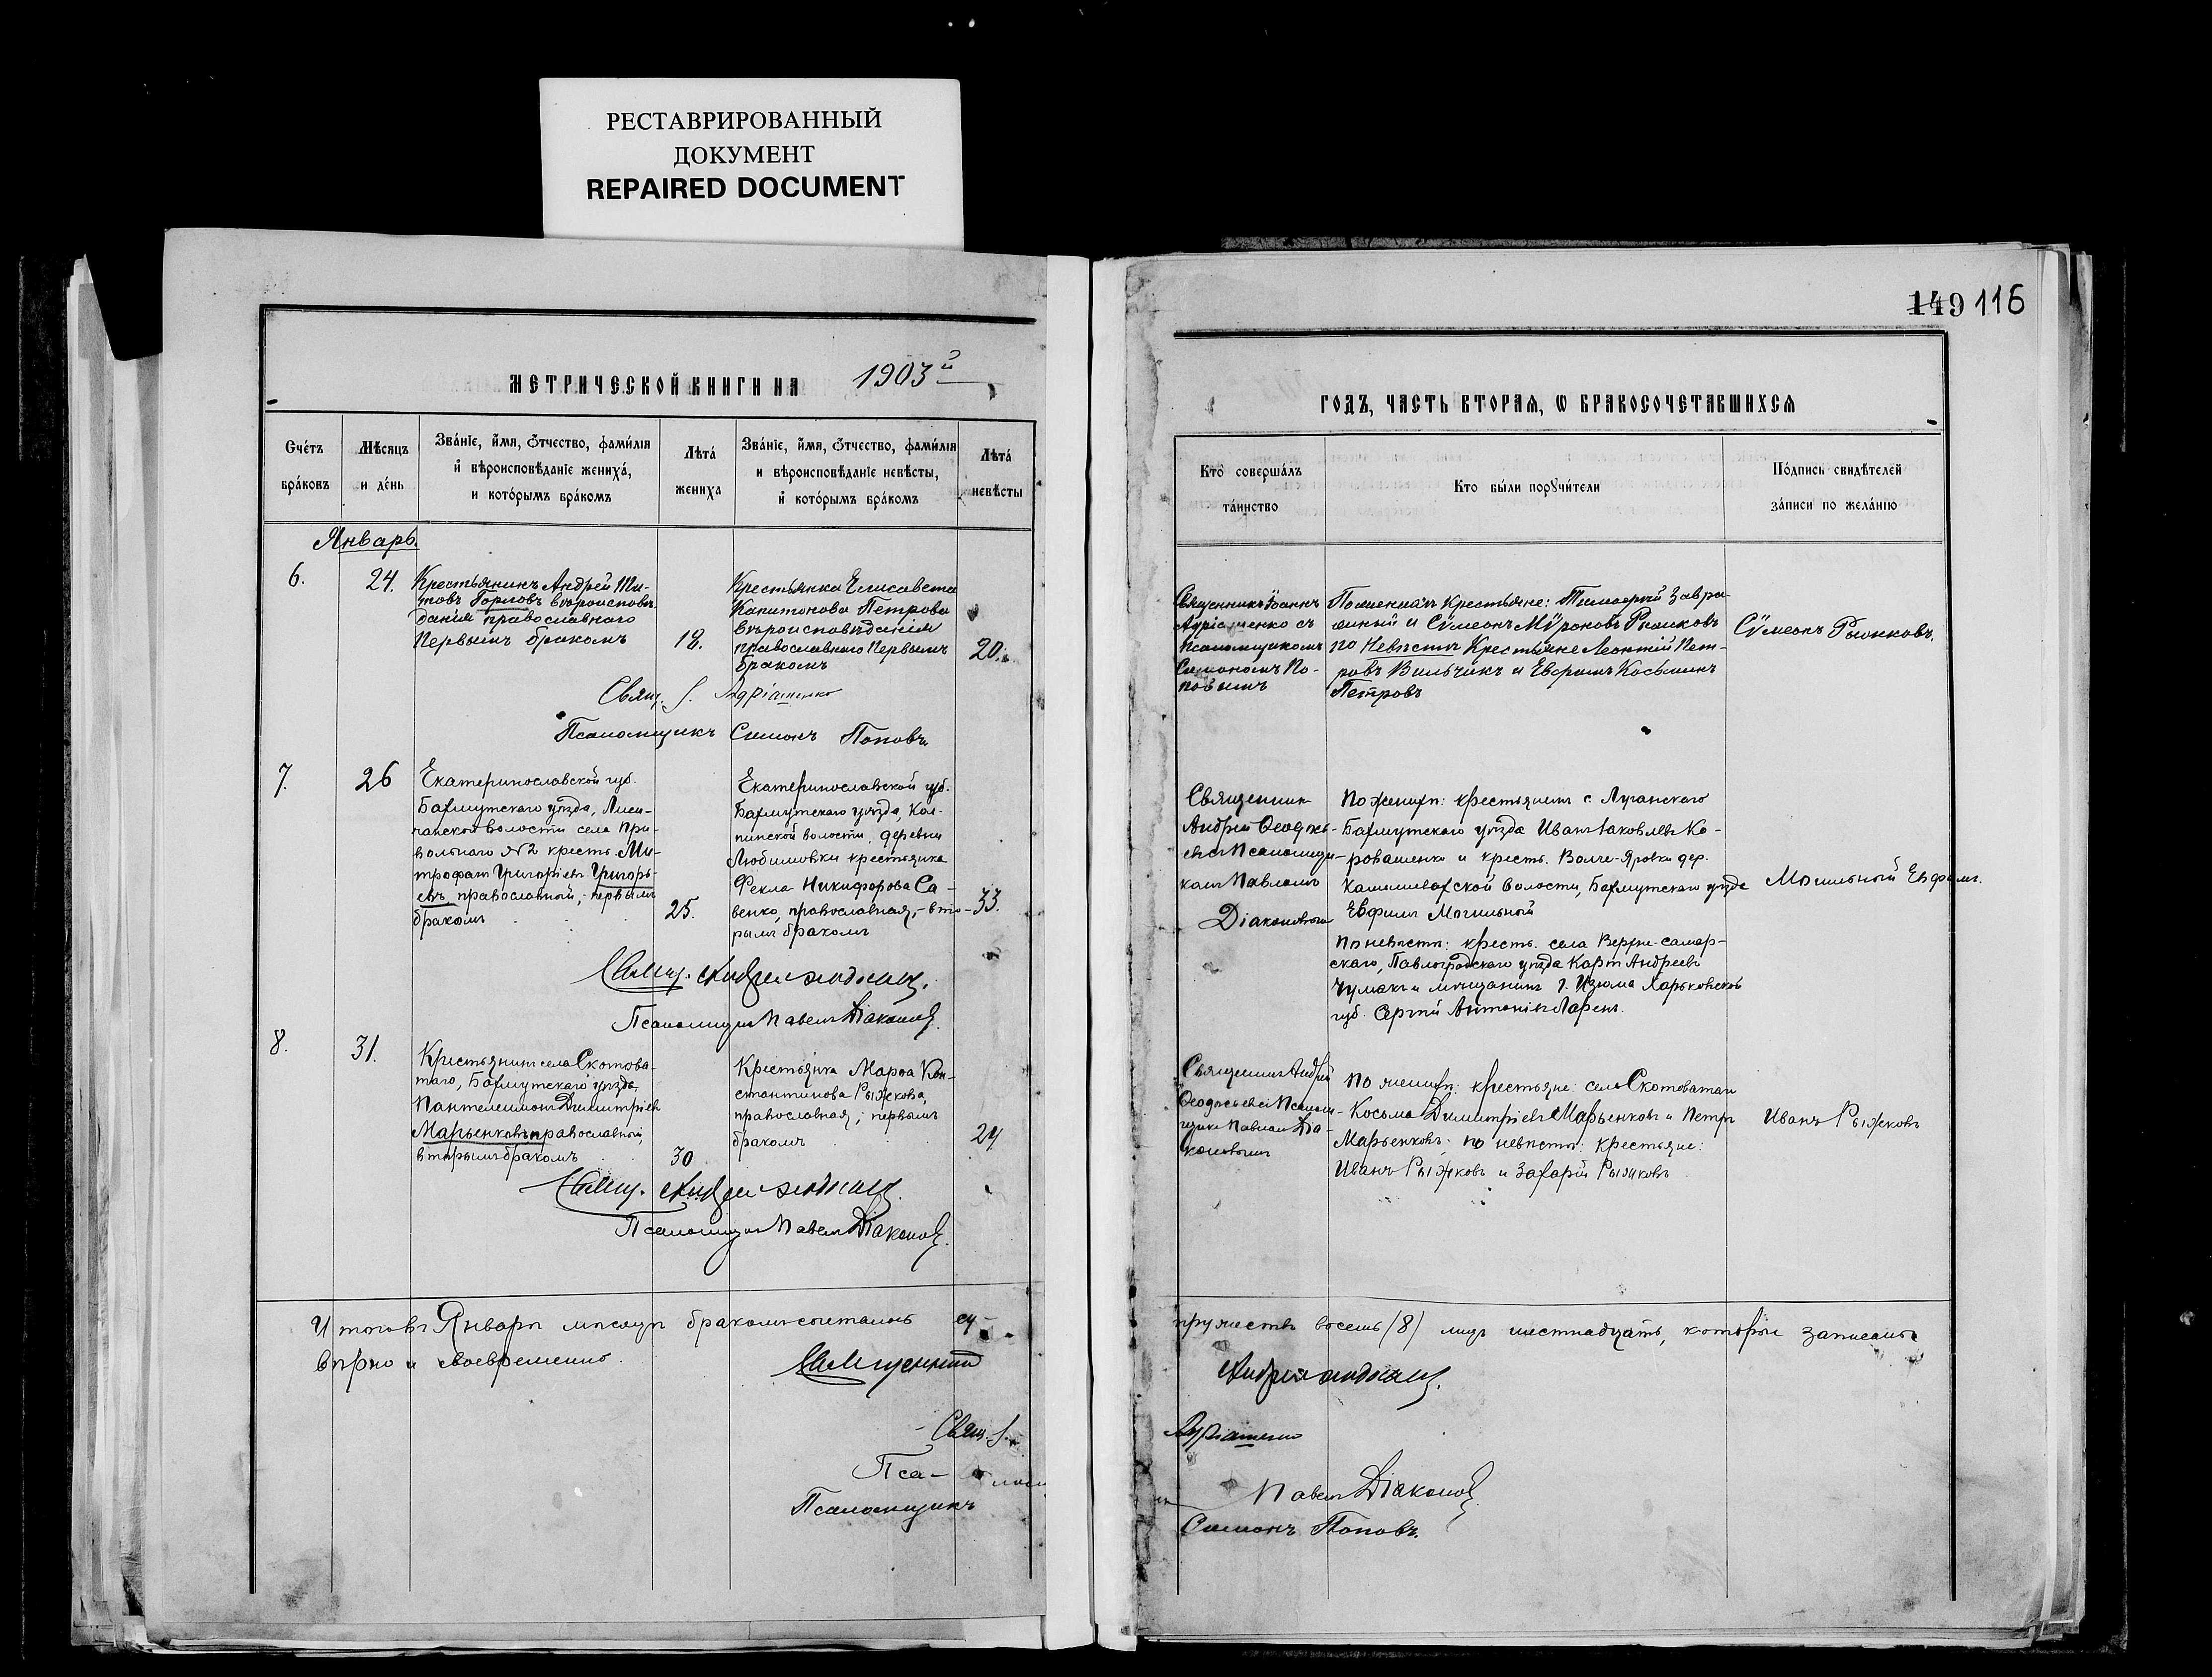 РЕСТАВРИРОВАННЫЙ
ДОКУМЕНТ
REPAIRED DOCUMENT
149 116
МЕТРИЧЕСКОЙ КНИГИ НА 1903й
ГОДЪ, ЧАСТЬ ВТОРАЯ, Ѡ БРАКОСОЧЕТАВШИХСЯ
Счетъ браковъ
Мѣсяцъ и день
Званіе, имя, отчество, фамилія
и вѣроисповѣданіе жениха,
и которымъ бракомъ
Лѣта жениха
Званіе, имя, отчество, фамилія
и вѣроисповѣданіе невѣсты,
и которымъ бракомъ
Лѣта невѣсты
Кто совершалъ
таинство
Кто были поручители
Подпись свидѣтелей
записи по желанію
Январь.
6.
24.
Крестьянинъ Андрей Ти-
товъ Горловъ вѣроисповѣ-
данія православнаго
Первымъ бракомъ
18.
Крестьянка Елисавета
Капитонова Петрова
вѣроисповѣданія
православнаго Первымъ
бракомъ
20.
Священникъ Іоаннъ
Адріашенко съ
Псаломщикомъ
Симономъ По-
повымъ
Крестьяне: Тимофей
и Сѵмеонъ Мѵроновъ Рыжковъ
по Невѣстѣ Крестьяне Леонтій Пет-
ровъ Вильчикъ и Евфимъ Косьминъ
Петровъ
Сѵмеонъ Рыжковъ.
Свящ. І. Адріашенко
Псаломщикъ Симонъ Поповъ
7.
26
Екатеринославской губ.
Бахмутскаго уѣзда, Лиси-
чанской волости села При-
вольнаго №2 крест. Ми-
трофанъ Григоріевъ Григорь-
евъ православный, - первымъ
бракомъ
25.
Екатеринославской губ.
Бахмутскаго уѣзда,
волости, деревни
Любимовки крестьянка
Фекла Никифорова Са-
венко, православная, - вто-
рымъ бракомъ
33.
Священник
Андрей Ѳеодось-
евъ съ Псаломщи-
комъ Павломъ
Діаконовымъ
По женихѣ: крестьянинъ с. Луганскаго
Бахмутскаго уѣзда Иванъ Іаковлевъ Ко-
ровашенко и крест. Волче-Яровки дер.
волости, Бахмутскаго уѣзда
Евфимъ Могильный
По невѣстѣ: крест. села Верхне-самар-
скаго, Павлоградскаго уѣзда Карпъ Андреевъ
Чумакъ и мѣщанинъ г. Изюма Харьковской
губ. Сергѣй Антоніевъ Ларенъ.
Могильный Евфимъ.
Свящ. Андрей
Псаломщикъ Павелъ Діаконов.
8.
31.
Крестьянинъ села Скотова-
таго, Бахмутскаго уѣзда,
Пантелеимонъ Димитріевъ
Марьенковъ православный,
вторымъ бракомъ
30
Крестьянка Марѳа Кон-
стантинова Рыжкова,
православная; первымъ
бракомъ
24
Священникъ Андрей
Ѳеодосьевъ съ Псалом-
щикомъ Павломъ Діа-
коновымъ
По женихѣ: крестьяне: села Скотоватаго
Косьма Димитріевъ Марьенковъ и Петръ
Марьенковъ; по невѣстѣ: крестьяне:
Иванъ Рыжковъ и Захарій Рыжковъ
Иванъ Рыжковъ
Свящ. Андрей
Псаломщикъ Павелъ Діаконов.
Итого въ Январѣ мѣсяцѣ бракомъ сочеталось су-
пружествъ восемь (8) лицъ шестнадцать, которые записаны
вѣрно и своевременно.
Священникъ
Андрей
Свящ. І.
Адріашенко
Пса-
Павелъ Діаконов.
Псаломщикъ
Симонъ Поповъ.